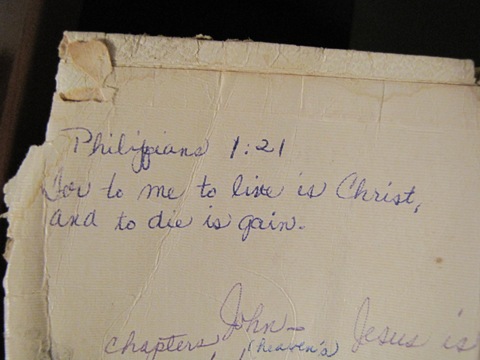 Philippians 1:21
For to me to live is Christ,
and to die is gain.
John - Jesus is
chapters, (heaven's)